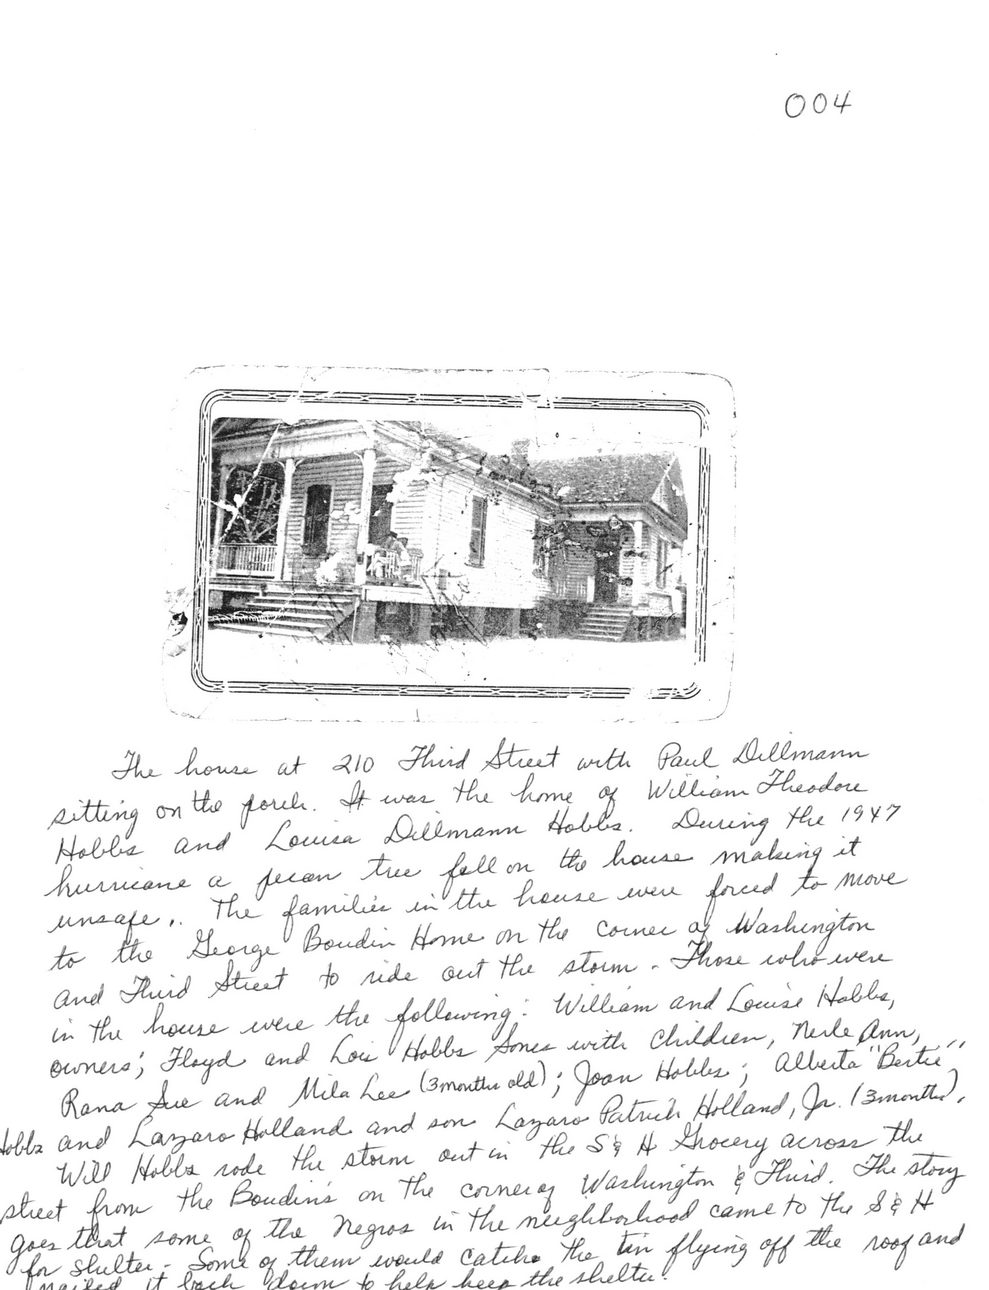 004
The house at 210 Third Street with Paul Dillmann
sitting on the porch. It was the home of William Theodore
Hobbs and Louisa Dillmann Hobbs. During the 1947
hurricane a pecan tree fell on the house making it
unsafe. The families in the house were forced to move
to the George Boudin Home on the corner of Washington
and Third Street to ride out the storm. Those who were
in the house were the following: William and Louise Hobbs,
owners; Floyd and Lois Hobbs Jones with children, Nerle Ann,
Rana Sue and Mila Lee (3 months old); Joan Hobbs; Alberta "Bertie"
Hobbs and Lazaro Holland and son Lazaro Patrick Holland, Jr. (3 months).
Will Hobbs rode the storm out in the S & H Grocery across the
street from the Boudin's on the corner of Washington & Third. The story
goes that some of the Negros in the neighborhood came to the S & H
for shelter. Some of them would catch the tin flying off the roof and
nailed it back down to help keep the shelter.